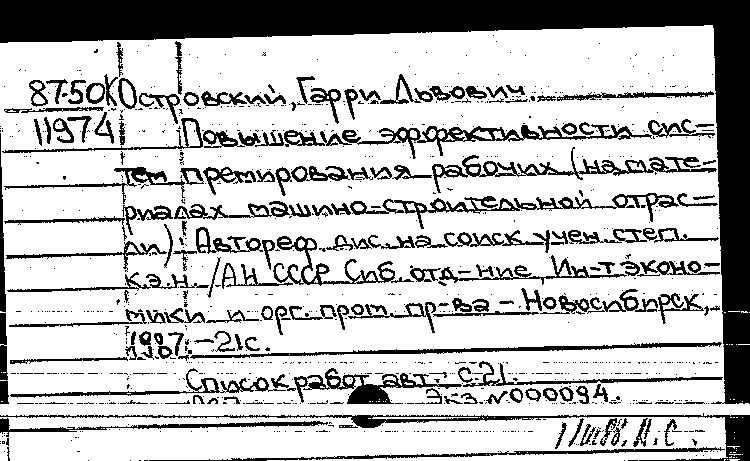 87-50К Островский, Гарри Львович.
11974 Повышение эффективности сис=
тем премирования рабочих (на мате-
риалах машино-строительной отрас=
ли): Автореф. дис. на соиск. учен. степ.
к.э.н. /АН СССР Сиб. отд-ние, Ин-т эконо-
мики и орг. пром. пр-ва. - Новосибирск,
1987. - 21с.
Список работ авт.: с.21.
Экз. N000094.